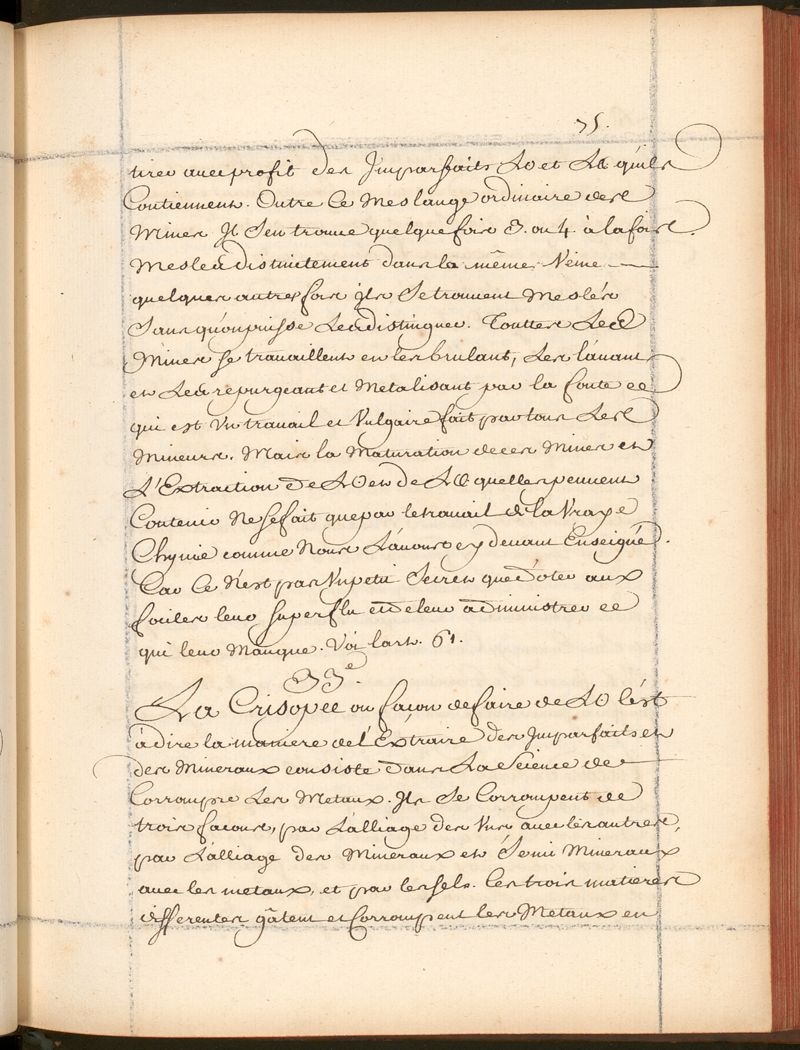 75.
tirer avec profit des Jmparfaits LO et La quils
Contiennent. Outre Ce Meslange ordinaire des
Mines Jl Sen trouve quelque fois 3. ou 4. à la fois
Meslea distinctement dans la même Veine
quelques autres fois jls Se trouvent Meslés
Sans qu'on puisse Les distinguer. Touttes Les
Mines se travaillent en les brulant, Les lavant
et Les repurgeant et Metalisant par la fonte ce
qui est Un travail et Vulgaire fait par tous Les
Mineurs. Mais la Maturation de ces Mines et
L'Extraction de LO et de La quelles peuvent
Contenir Ne se fait que par le travail de la Vraye
Chymie comme Nous L'avons cy devant Enseigné.
Car Ce N'est pas Un petit Secret que d'oter aux
foibles leur superflu et de leur administrer ce
qui leur Manque. Voi lart. 61.
33e.
La Crisopée ou façon de faire de LO c'est
à dire la maniere de l'Extraire des Jmparfaits et
des Mineraux consiste dans La Science de
Corrompre Les Metaux. Jls Se Corrompent de
trois facons, par L'alliage des Uns avec les autres,
par L'alliage des Mineraux et Semi Mineraux
avec les metaux, et par les sels. Ces trois matieres
differentes gâtent et Corrompent les Metaux en